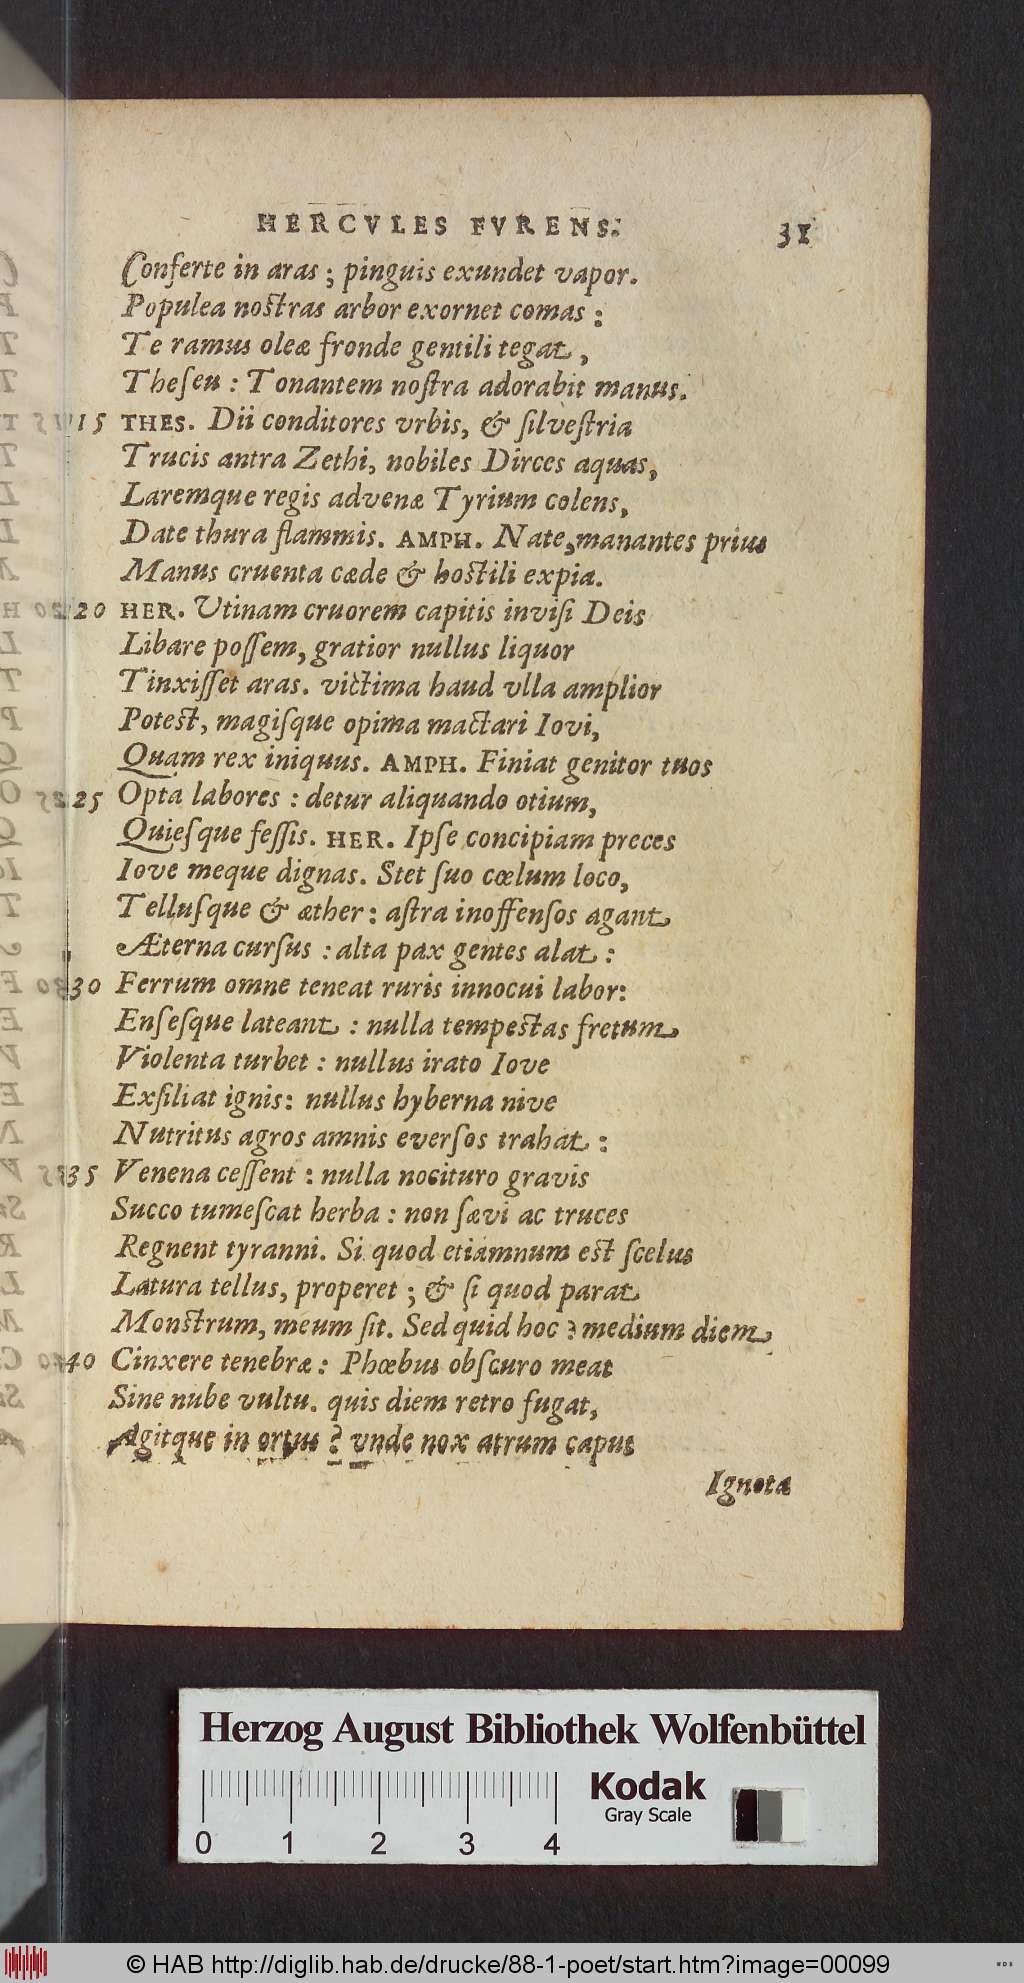 HERCVLES FVRENS. 31
Conferte in aras ; pinguis exundet vapor.
Populea nostras arbor exornet comas :
Te ramus oleæ fronde gentili tegat ,
Theseu : Tonantem nostra adorabit manus.
15 THES. Dii conditores vrbis, & silvestria
Trucis antra Zethi, nobiles Dirces aquas,
Laremque regis advenæ Tyrium colens,
Date thura flammis. AMPH. Nate, manantes prius
Manus cruenta cæde & hostili expia.
20 HER. Utinam cruorem capitis invisi Deis
Libare possem, gratior nullus liquor
Tinxisset aras. victima haud vlla amplior
Potest, magisque opima mactari Iovi,
Quam rex iniquus. AMPH. Finiat genitor tuos
25 Opta labores : detur aliquando otium,
Quiesque fessis. HER. Ipse concipiam preces
Iove meque dignas. Stet suo cœlum loco,
Tellusque & æther : astra inoffensos agant
Æterna cursus : alta pax gentes alat :
30 Ferrum omne teneat ruris innocui labor:
Ensesque lateant : nulla tempestas fretum
Violenta turbet : nullus irato Iove
Exsiliat ignis: nullus hyberna nive
Nutritus agros amnis eversos trahat :
35 Venena cessent : nulla nocituro gravis
Succo tumescat herba : non sævi ac truces
Regnent tyranni. Si quod etiamnum est scelus
Latura tellus, properet ; & si quod parat
Monstrum, meum sit. Sed quid hoc ? medium diem
40 Cinxere tenebræ : Phœbus obscuro meat
Sine nube vultu. quis diem retro fugat,
Agitque in ortus ? vnde nox atrum caput
Ignota
Herzog August Bibliothek Wolfenbüttel
Kodak
Gray Scale
0 1 2 3 4
© HAB http://diglib.hab.de/drucke/88-1-poet/start.htm?image=00099